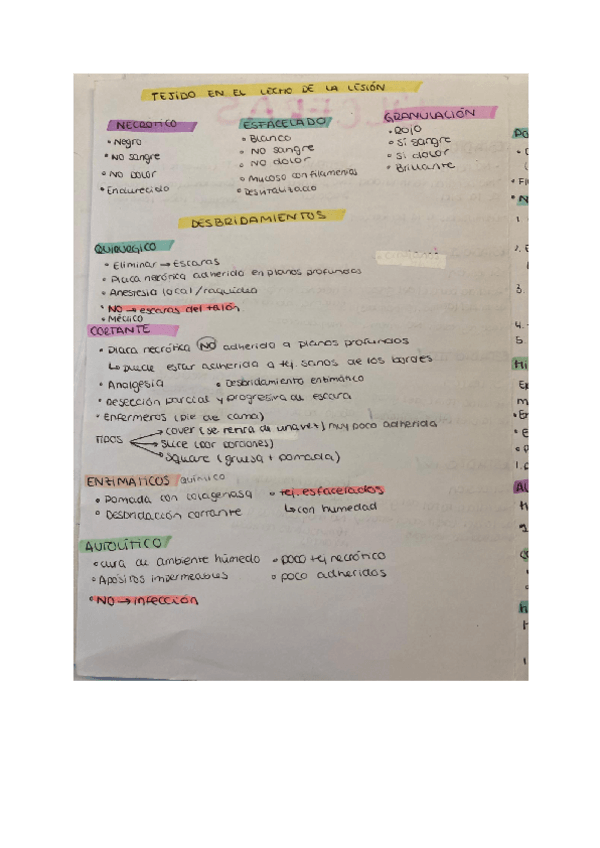 TEJIDO EN EL LECHO DE LA LESIÓN
NECROTICO
• Negro
• NO sangre
• NO DOLOR
• Endurecido
ESFACELADO
• Blanco
• NO sangre
• NO dolor
• Mucoso con filamentos
• Desvitalizado
GRANULACIÓN
• Rojo
• Sí sangre
• Sí dolor
• Brillante
DESBRIDAMIENTOS
QUIRURGICO
• Eliminar → Escaras
• Placa necrótica adherida en planos profundos
• Anestesia local/raquidea
• NO → escaras del talón
• Médico
CORTANTE
• Placa necrótica NO adherido a planos profundos
↳ puede estar adherida a tej. sanos de los bordes
• Analgesia • Desbridamiento enzimático
• Desección parcial y progresiva de escara
• Enfermeros (pie de cama)
TIPOS
→ cover (se retira de una vez) muy poco adherida
→ Slice (por porciones)
→ Square (gruesa + pomada)
ENZIMATICOS /químico
• Pomada con colagenasa • tej. esfacelados
• Desbridación cortante ↳ con humedad
AUTOLÍTICO
• cura de ambiente húmedo • poco tej necrótico
• Apósitos impermeables • poco adheridos
• NO → infección